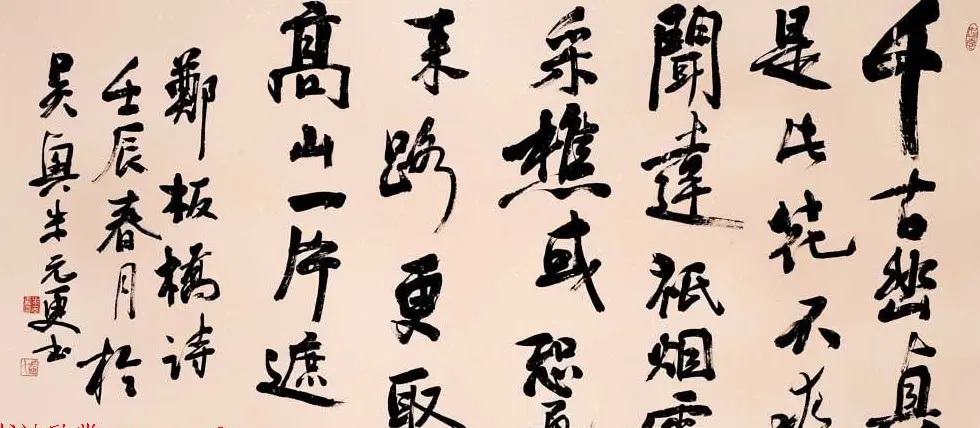 千古幽貞
是此花不求
聞達祇烟霞
采樵或恐
来路更取
高山一片遮
鄭板橋詩
壬辰春月於
吴興朱元更书